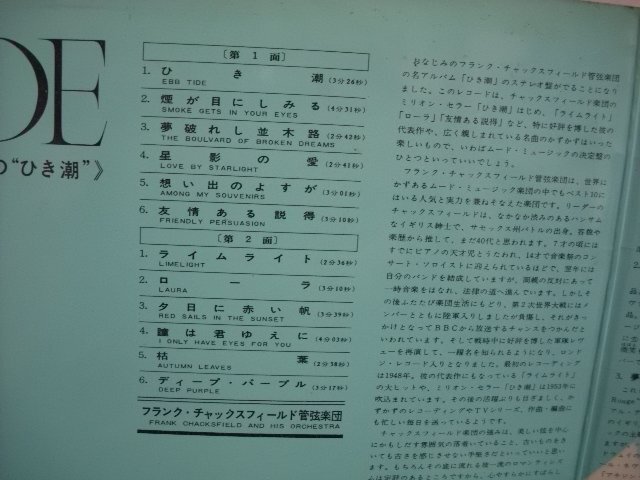 DE
の"ひき潮"》
〔第1面〕
1. ひき潮(3分26秒)
EBB TIDE
2. 煙が目にしみる(4分31秒)
SMOKE GETS IN YOUR EYES
3. 夢破れし並木路(2分42秒)
THE BOULVARD OF BROKEN DREAMS
4. 星影の愛(2分41秒)
LOVE BY STARLIGHT
5. 想い出のよすが(3分01秒)
AMONG MY SOUVENIRS
6. 友情ある説得(3分10秒)
FRIENDLY PERSUASION
〔第2面〕
1. ライムライト(2分36秒)
LIMELIGHT
2. ローラ(3分10秒)
LAURA
3. 夕日に赤い帆(3分39秒)
RED SAILS IN THE SUNSET
4. 瞳は君ゆえに(4分03秒)
I ONLY HAVE EYES FOR YOU
5. 枯葉(2分38秒)
AUTUMN LEAVES
6. ディープ・パープル(3分17秒)
DEEP PURPLE
フランク・チャックスフィールド管弦楽団
FRANK CHACKSFIELD AND HIS ORCHESTRA
おなじみのフランク・チャックスフィールド管弦楽団
の名アルバム「ひき潮」のステレオ盤がでることになり
ました。このレコードは、チャックスフィールド楽団の
ミリオン・セラー「ひき潮」はじめ、「ライムライト」
「ローラ」「友情ある説得」など、特に好評を博した彼の
代表作や、広く親しまれている名曲のかずかずはいった
楽しいもので、いわばムード・ミュージックの決定盤の
ひとつといっていいでしょう。
フランク・チャックスフィールド管弦楽団は、世界に
かずあるムード・ミュージック楽団の中でもベスト10に
はいる人気と実力を兼ねそなえた楽団です。リーダーの
チャックスフィールドは、なかなか渋みのあるハンサム
なイギリス紳士で、サセックス州バトルの出身。容貌や
楽歴から推して、まだ40代と思われます。7才の頃には
すでにピアノの天才児とうたわれ、14才で音楽祭のコン
サート・ソロイストに迎えられているほどで、翌年には
自分のバンドを結成していますが、両親の反対にあって
一時音楽をはなれ、法律の道へ進んでいます。しかしそ
の後ふたたび楽団生活にもどり、第2次世界大戦にはメ
ンバーとともに陸軍入りしましたが負傷し、それがきっ
かけとなってBBCから放送するチャンスをつかんだと
いわれています。そして戦時中に好評を博した軍隊レヴ
ューを再演して、一躍名を知られるようになり、ロンド
ン・レコード入りとなりました。最初のレコーディング
は1948年。彼の代表作にもなっている「ライムライト」
の大ヒットや、ミリオン・セラー「ひき潮」は1953年に
吹込まれています。その後の活躍ぶりも目ざましく、か
ずかずのレコーディングやTVシリーズ、作曲・編曲に
も忙しい毎日を送っているようです。
チャックスフィールド楽団の強みは、美しい弦を中心
にかもしだす雰囲気の落着いていること、古いものをき
いても古さを感じさせない手堅さだといっていいと思い